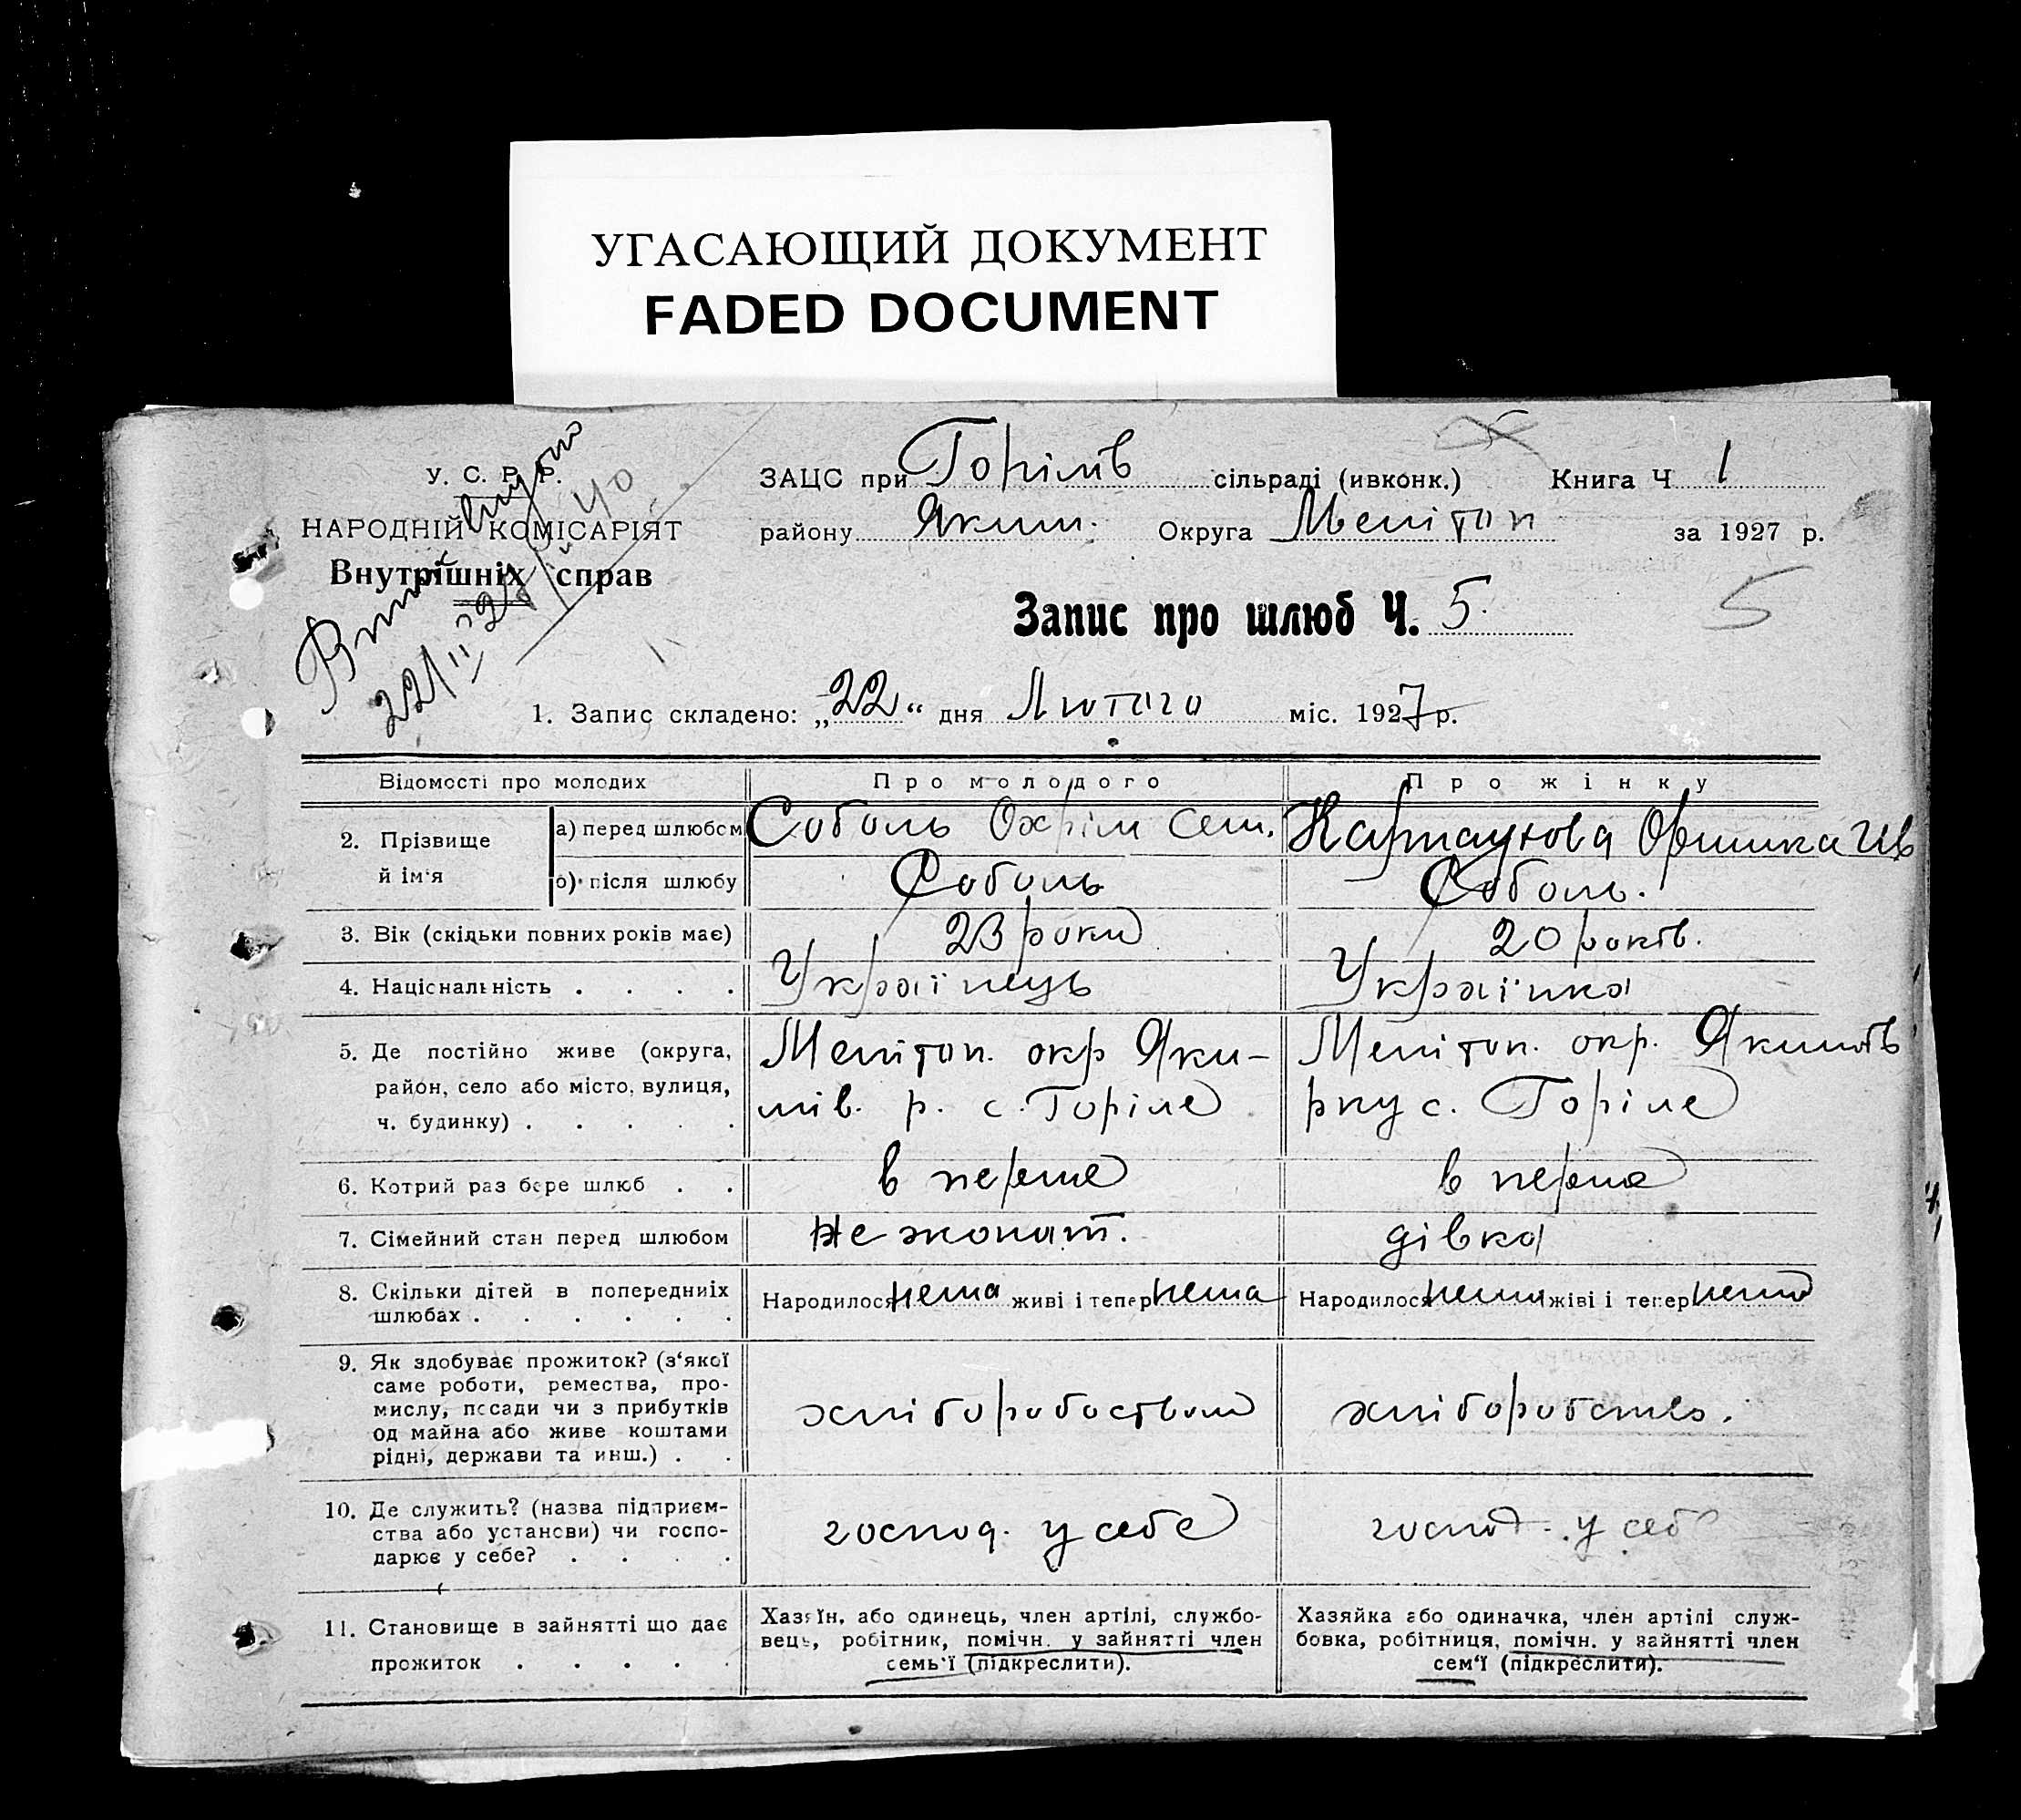 УГАСАЮЩИЙ ДОКУМЕНТ
FADED DOCUMENT
У. С. Р. Р.
НАРОДНІЙ КОМІСАРІЯТ
Внутрішніх справ
ЗАЦС при Горілів сільраді (ивконк.) Книга Ч 1
району Яким. Округа Мелітоп за 1927 р.
Запис про шлюб Ч. 5.
5
1. Запис складено: „22“ дня Лютого міс. 1927 р.
Відомості про молодих Про молодого Про жінку
2. Прізвище й ім'я
а) перед шлюбом Соболь Охрім Сем. Оришка Ив
б) після шлюбу Соболь Соболь.
3. Вік (скільки повних років має) 23 роки 20 років.
4. Національність . . . . Українець Українка
5. Де постійно живе (округа, Меліточ. окр Яки- Меліточ. окр. Якимів
район, село або місто, вулиця,
ч. будинку) . . . . . мів. р. с. Горіле рну с. Горіле
6. Котрий раз бере шлюб . . в перше в перше
7. Сімейний стан перед шлюбом не жонат. дівка
8. Скільки дітей в попередниіх
шлюбах . . . . . . Народилося нема живі і тепер нема Народилося нема жіві і тепер нема
9. Як здобуває прожиток? (з‘якої
саме роботи, ремества, про-
мислу, посади чи з прибутків
од майна або живе коштами
рідні, держави та инш.) . .
хліборобоством хліборобств.
10. Де служить? (назва підприєм-
ства або установи) чи госпо-
дарює у себе? . . . .
господ. у себе господ. у себе
11. Становище в зайнятті що дає
прожиток . . . . .
Хазяїн, або одинець, член артілі, службо-
вець, робітник, помічн. у зайнятті член
семь‘ї (підкреслити).
Хазяйка або одиначка, член артілі служ-
бовка, робітниця, помічн. у зайнятті член
сем‘ї (підкреслити).